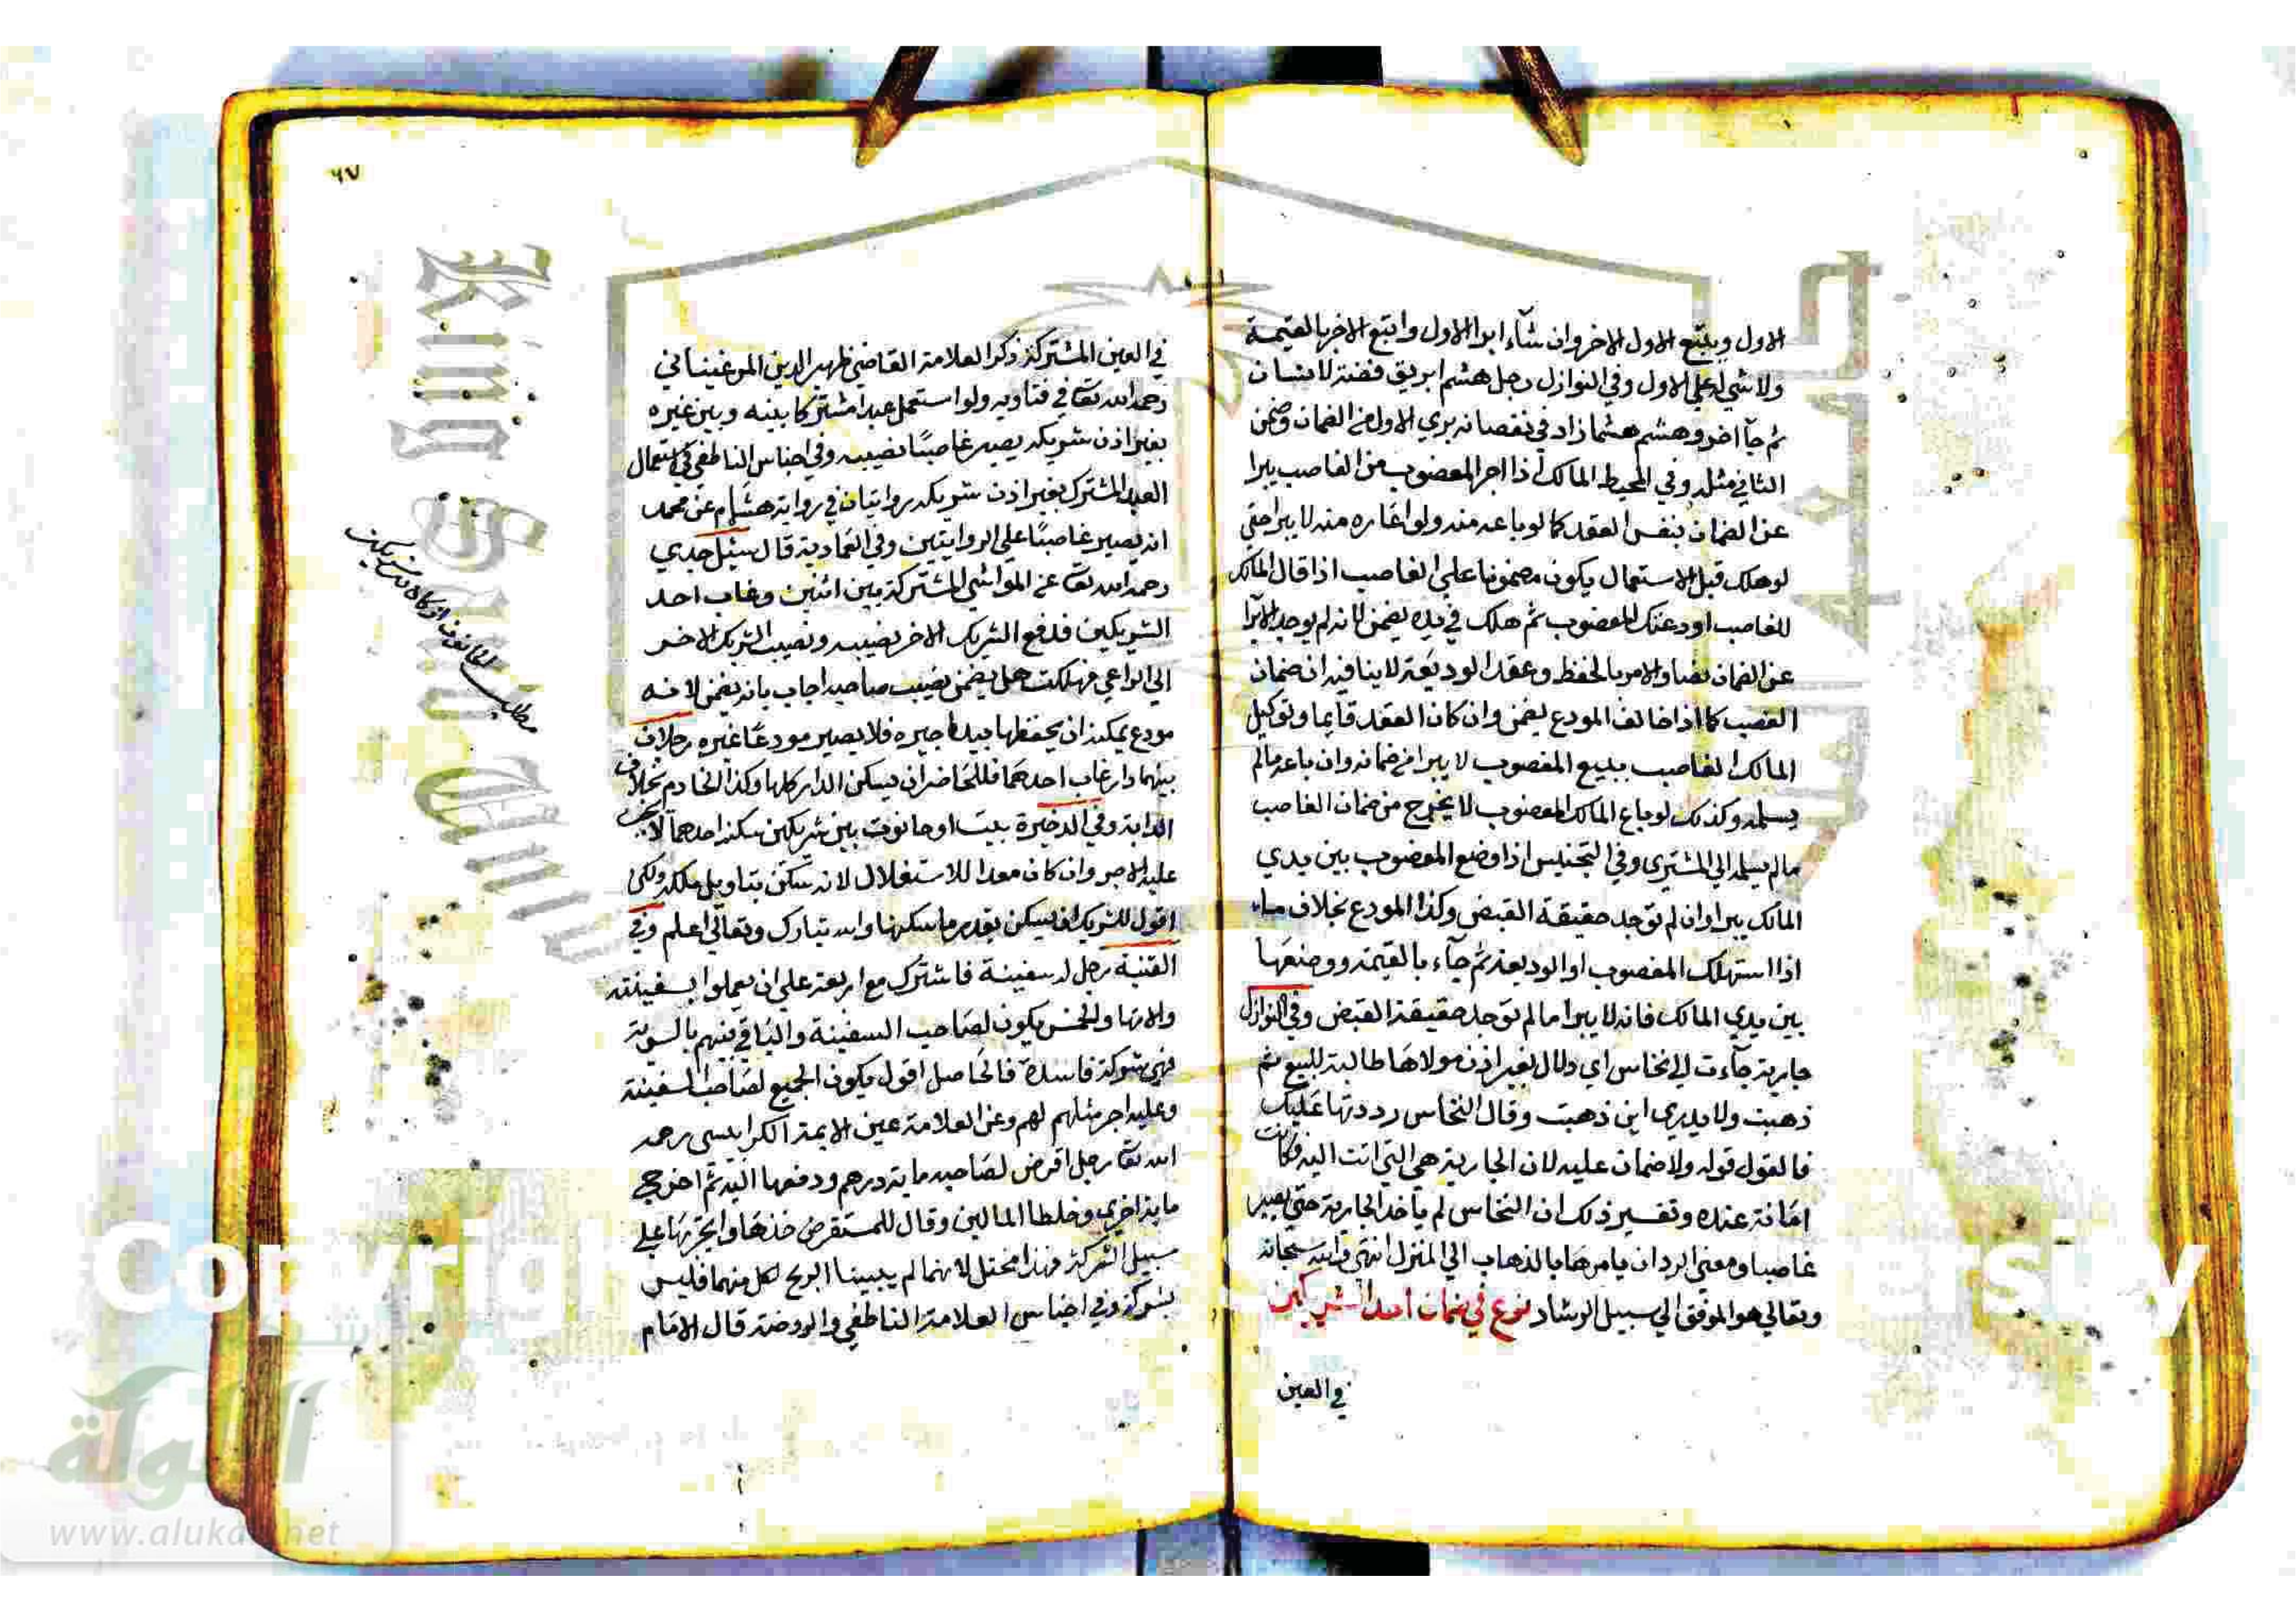 الاول ويتبع الاول الاخر وان شآء ابرا الاول واتبع الاخر بالقيمة
ولا شي له علي الاول وفي النوازل رجل هشم ابريق فضة لانسان
ثم جآ اخر وهشم هشما زاد في نقصانه بري الاول من الضمان وضمن
الثاني مثله وفي المحيط المالك اذا اجر المغصوب من الغاصب يبرا
عن الضمان بنفس العقد كما لو باعه منه ولو اعاره منه لا يبرا حتي
لو هلك قبل الاستعمال يكون مضمونا علي الغاصب اذا قال المالك
للغاصب اودعتك المغصوب ثم هلك في يده يضمن لانه لم يوجد الابرا
عن الضمان نصا والامر بالحفظ وعقد الوديعة لا ينافيه ان ضمان
الغصب كما اذا خالف المودع يضمن وان كان العقد قايما وتوكيل
المالك الغاصب ببيع المغصوب لا يبرا من ضمانه وان باعه مالم
يسلمه وكذلك لو باع المالك المغصوب لا يخرج من ضمان الغاصب
مالم يسلمه الي المشتري وفي التجنيس اذا وضع المغصوب بين يدي
المالك يبرا وان لم توجد حقيقة القبض وكذا المودع بخلاف ماء
اذا استهلك المغصوب او الوديعة ثم جآء بالقيمة ووضعها
بين يدي المالك فانه لا يبرا مالم توجد حقيقة القبض وفي النوازل
جارية جآءت الي نخاس اي دلال بغير اذن مولاها طالبة للبيع ثم
ذهبت ولا يدري اين ذهبت وقال النخاس رددتها عليك
فالقول قوله ولا ضمان عليه لان الجارية هي التي اتت اليه فكانت
امانة عنده وتفسير ذلك ان النخاس لم ياخذ الجارية حتي يصير
غاصبا ومعني الرد ان يامرها بالذهاب الي المنزل انتهي والله سبحانه
وتعالي هو الموفق الي سبيل الرشاد نوع في ضمان احد الشريكين
في العين
٦٧
في العين المشتركة ذكر العلامة القاضي ظهير الدين المرغيناني
رحمه الله تعا في فتاويه ولو استعمل عبدا مشتركا بينه وبين غيره
بغير اذن شريكه يصير غاصبًا نصيبه وفي اجناس الناطفي في استعمال
العبد المشترك بغير اذن شريكه روايتان في رواية هشام عن محمد
انه يصير غاصبًا علي الروايتين وفي العمادية قال سئل جدي
رحمه الله تعا عن المواشي المشتركة بين اثنين وغاب احد
الشريكين فدفع الشريك الاخر نصيبه ونصيب الشريك الاخر
الي الراعي فهلكت هل يضمن نصيب صاحبه اجاب بانه يضمن لانه
مودع يمكنه ان يحفظها بيد اجيره فلا يصير مودعًا غيره رجلان
بينهما دار غاب احدهما فللحاضر ان يسكن الدار كلها وكذا الخادم بخلاف
الدابة وفي الذخيرة بيت او حانوت بين شريكين سكنه احدهما لا يجب
عليه الاجر وان كان معدا للاستغلال لانه سكن بتاويل ملكه ولكن
اقول للشريك ان يسكن بقدر ما سكنها والله تبارك وتعالي اعلم وفي
القنية رجل له سفينة فاشترك مع اربعة علي ان يعملوا بسفينته
والاتها والخمس يكون لصاحب السفينة والباقي بينهم بالسوية
فهي شركة فاسدة فالحاصل اقول يكون الجميع لصاحب السفينة
وعليه اجر مثلهم لهم وعن العلامة عين الايمة الكرابيسي رحمه
الله تعا رجل اقرض لصاحبه ماية درهم ودفعها اليه ثم اخرج
ماية اخري وخلطا المالين وقال للمستقرض خذها واتجر بها علي
سبيل الشركة فهذا مختل لانهما لم يبينا الربح لكل منهما فليس
بشركة وفي اجناس العلامة الناطفي والروضة قال الامام
مطلب
King Saud Univ
Copyrig
ersity
شبكة
الألوكة
www.alukah.net